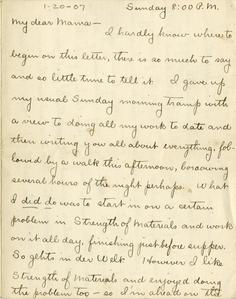 1-20-07 Sunday 8:00 P.M.
My dear Mama—
I hardly know where to
begin on this letter, there is so much to say
and so little time to tell it. I gave up
my usual Sunday morning tramp with
a view to doing all my work to date and
then writing you all about everything, fol-
lowed by a walk this afternoon, borrowing
several hours of the night perhaps. What
I did do was to start in on a certain
problem in Strength of Materials and work
on it all day, finishing just before supper.
So gehts in der Welt. However I like
Strength of Materials and enjoyed doing
the problem too — so I'm ahead on the